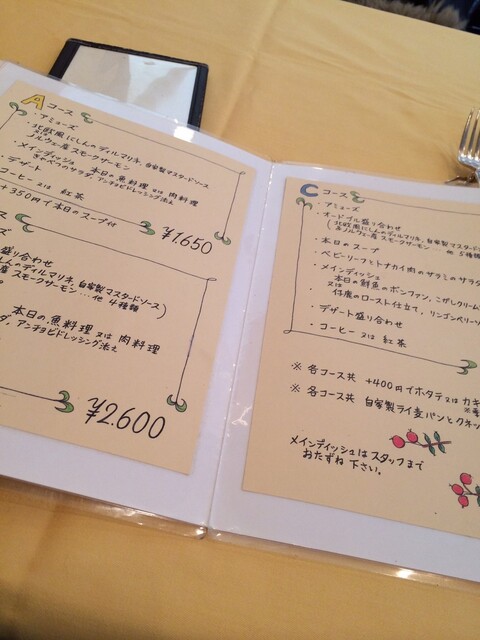 A コース
・アミューズ
・北欧風にしんのディルマリネ、自家製マスタードソース
又は
ノルウェー産 スモークサーモン
・メインディッシュ 本日の魚料理 又は 肉料理
きゃべつのサラダ、アンチョビドレッシング添え
デザート
コーヒー 又は 紅茶
+350円で本日のスープ付
¥1.650
ース
ズ
盛り合わせ
しんのディルマリネ、自家製マスタードソース
産 スモークサーモン...他 4種類)
本日の魚料理 又は 肉料理
ダ、アンチョビドレッシング添え
¥2.600
C コース
・アミューズ
・オードブル盛り合わせ
(北欧風にしんのディルマリネ、自家製マスタード
ノルウェー産 スモークサーモン 他 5種類
・本日のスープ
・ベビーリーフとトナカイ肉のサラミのサラダ
・メインディッシュ
本日の鮮魚のポンファン、こがしクリーム
又は
仔鹿のロースト仕立て、リンゴンベリーソ
・デザート盛り合わせ
・コーヒー 又は 紅茶
※ 各コース共 +400円でホタテ又はカキ
※ 各コース共 自家製ライ麦パンとクネッ
メインディッシュはスタッフまで
おたずね下さい。